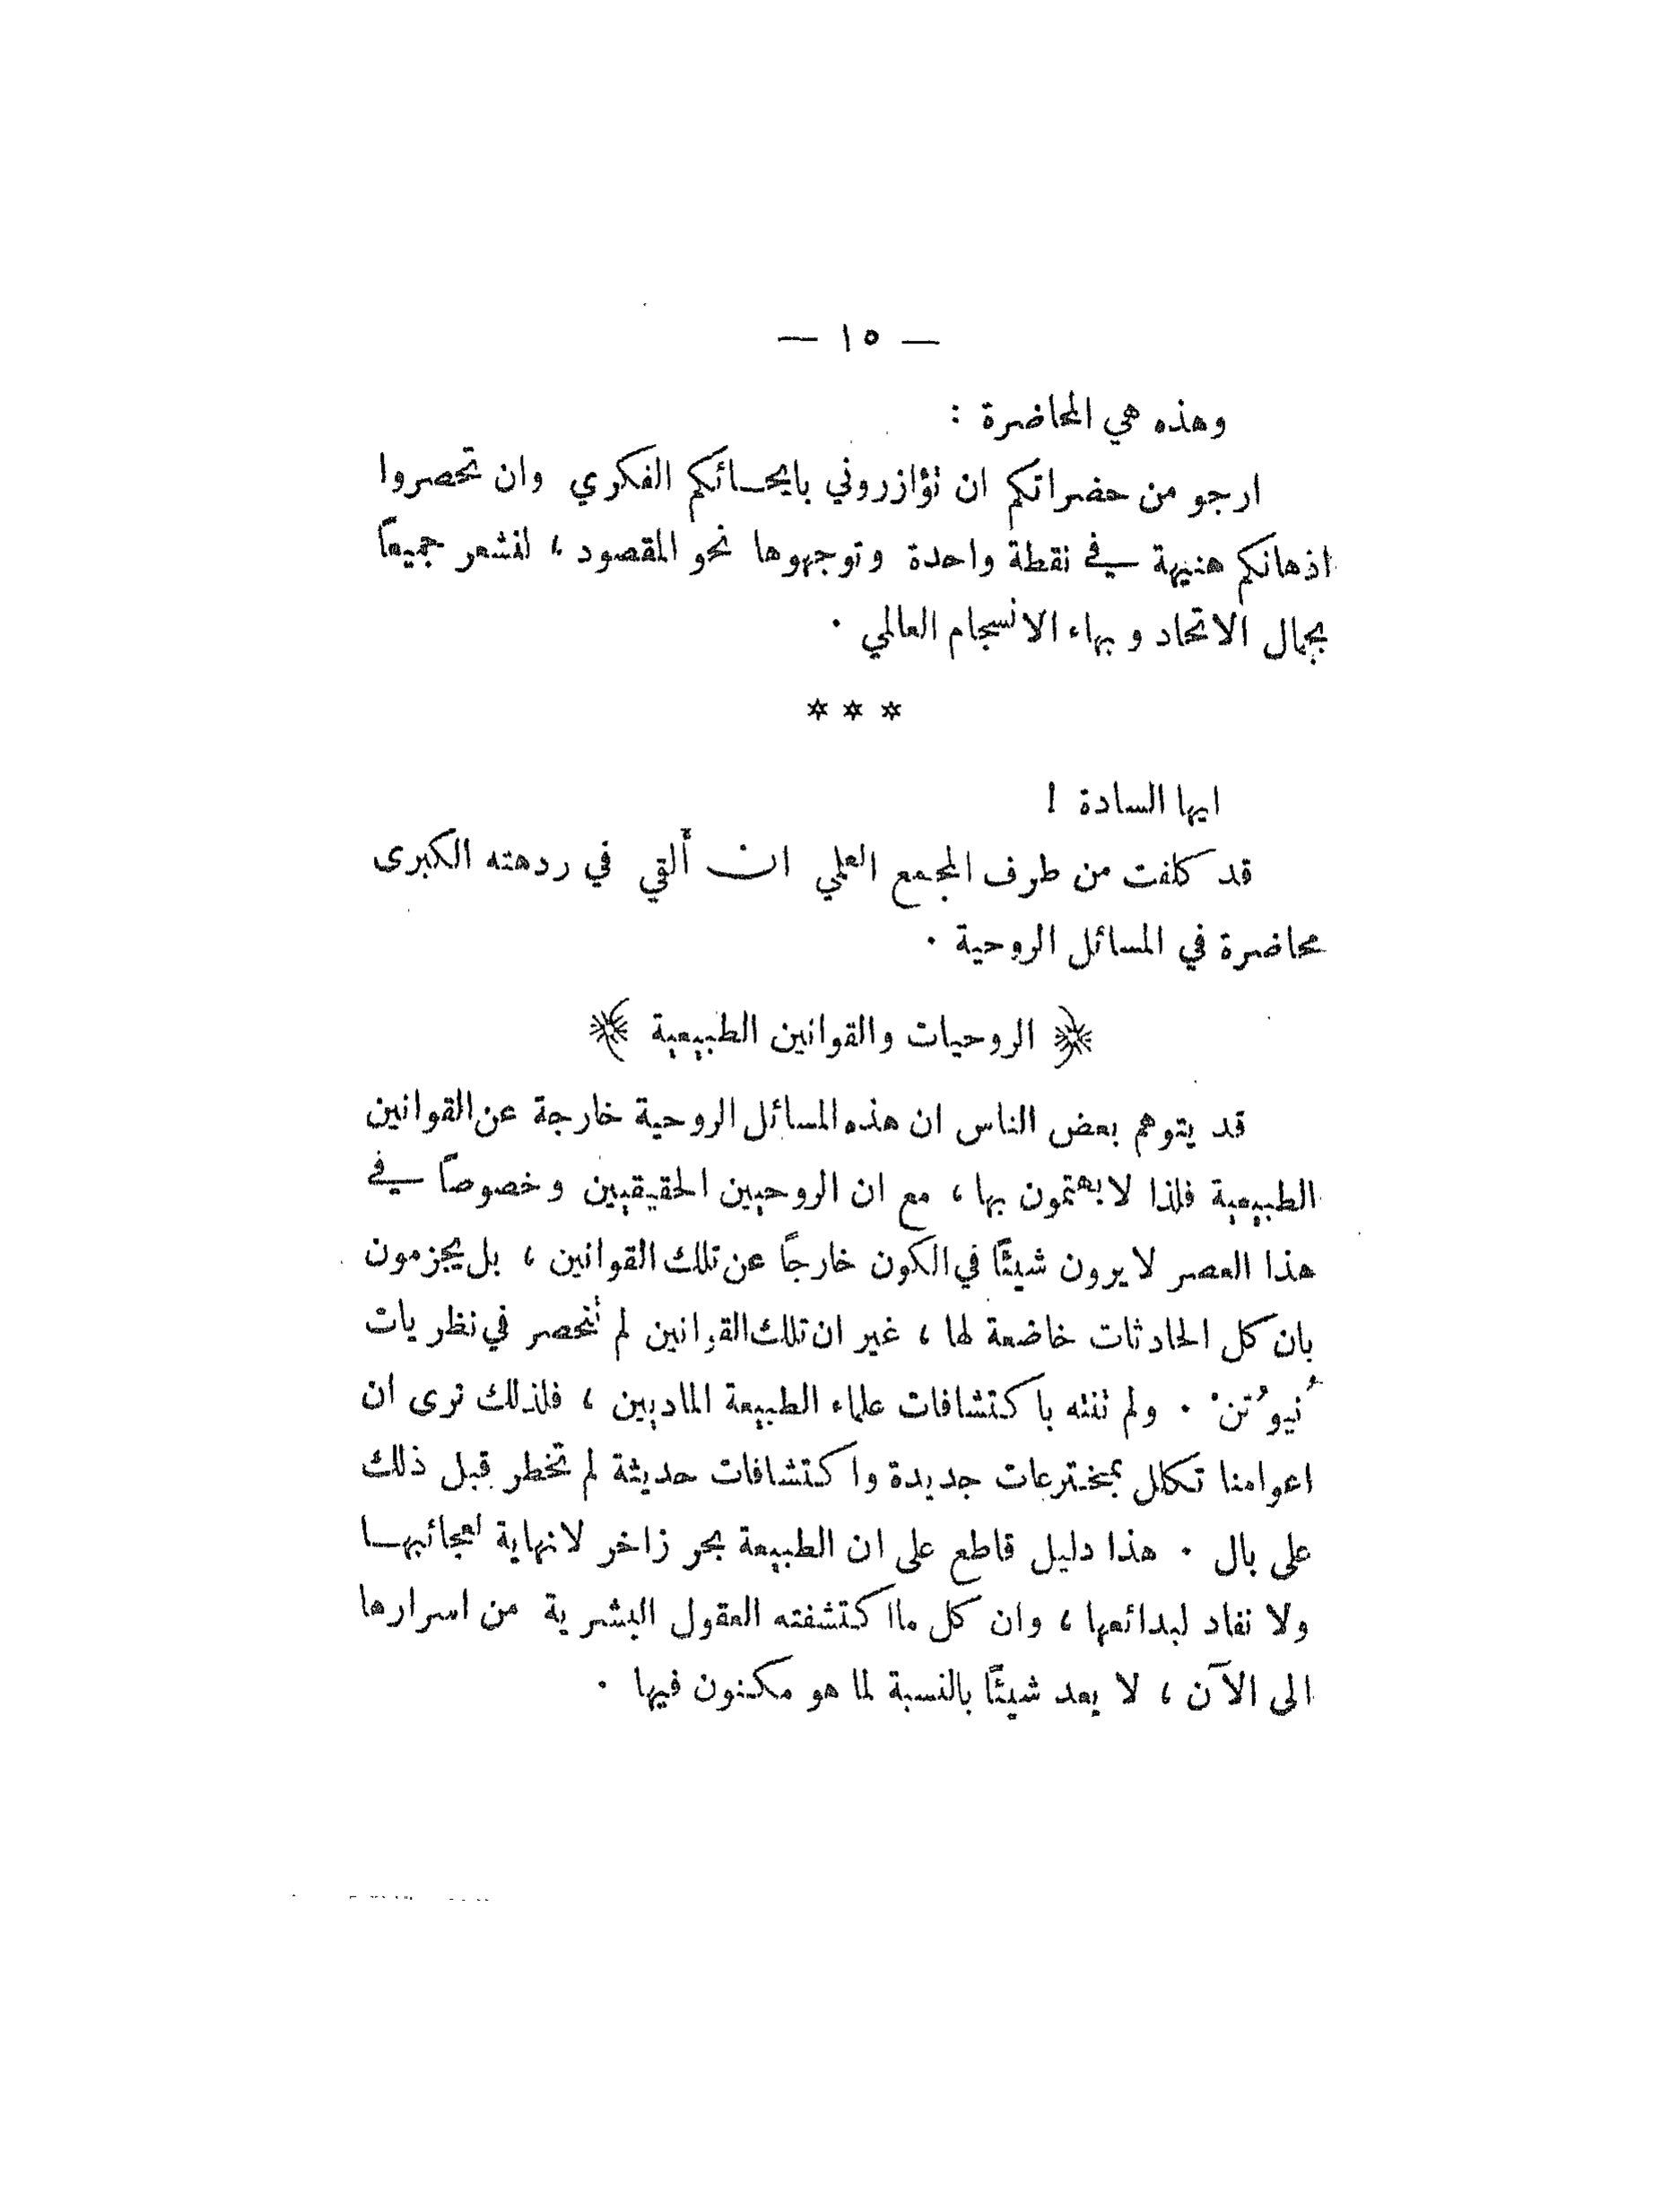 — ١٥ —
وهذه هي المحاضرة :
ارجو من حضراتكم ان تؤازروني بايحائكم الفكري وان تحصروا
اذهانكم هنيهة في نقطة واحدة وتوجهوها نحو المقصود ، لنشعر جميعاً
بجمال الاتحاد وبهاء الانسجام العالمي .
* * *
ايها السادة !
قد كلفت من طرف المجمع العلمي ان أُلقي في ردهته الكبرى
محاضرة في المسائل الروحية .
﴿ الروحيات والقوانين الطبيعية ﴾
قد يتوهم بعض الناس ان هذه المسائل الروحية خارجة عن القوانين
الطبيعية فلذا لا يهتمون بها ، مع ان الروحيين الحقيقيين وخصوصاً في
هذا العصر لا يرون شيئاً في الكون خارجاً عن تلك القوانين ، بل يجزمون
بان كل الحادثات خاضعة لها ، غير ان تلك القوانين لم تنحصر في نظريات
نُيوتُنْ . ولم تنته باكتشافات علماء الطبيعة الماديين ، فلذلك ترى ان
اعوامنا تكلل بمخترعات جديدة واكتشافات حديثة لم تخطر قبل ذلك
على بال . هذا دليل قاطع على ان الطبيعة بحر زاخر لا نهاية لعجائبها
ولا نفاد لبدائعها ، وان كل ما اكتشفته العقول البشرية من اسرارها
الى الآن ، لا يعد شيئاً بالنسبة لما هو مكنون فيها .